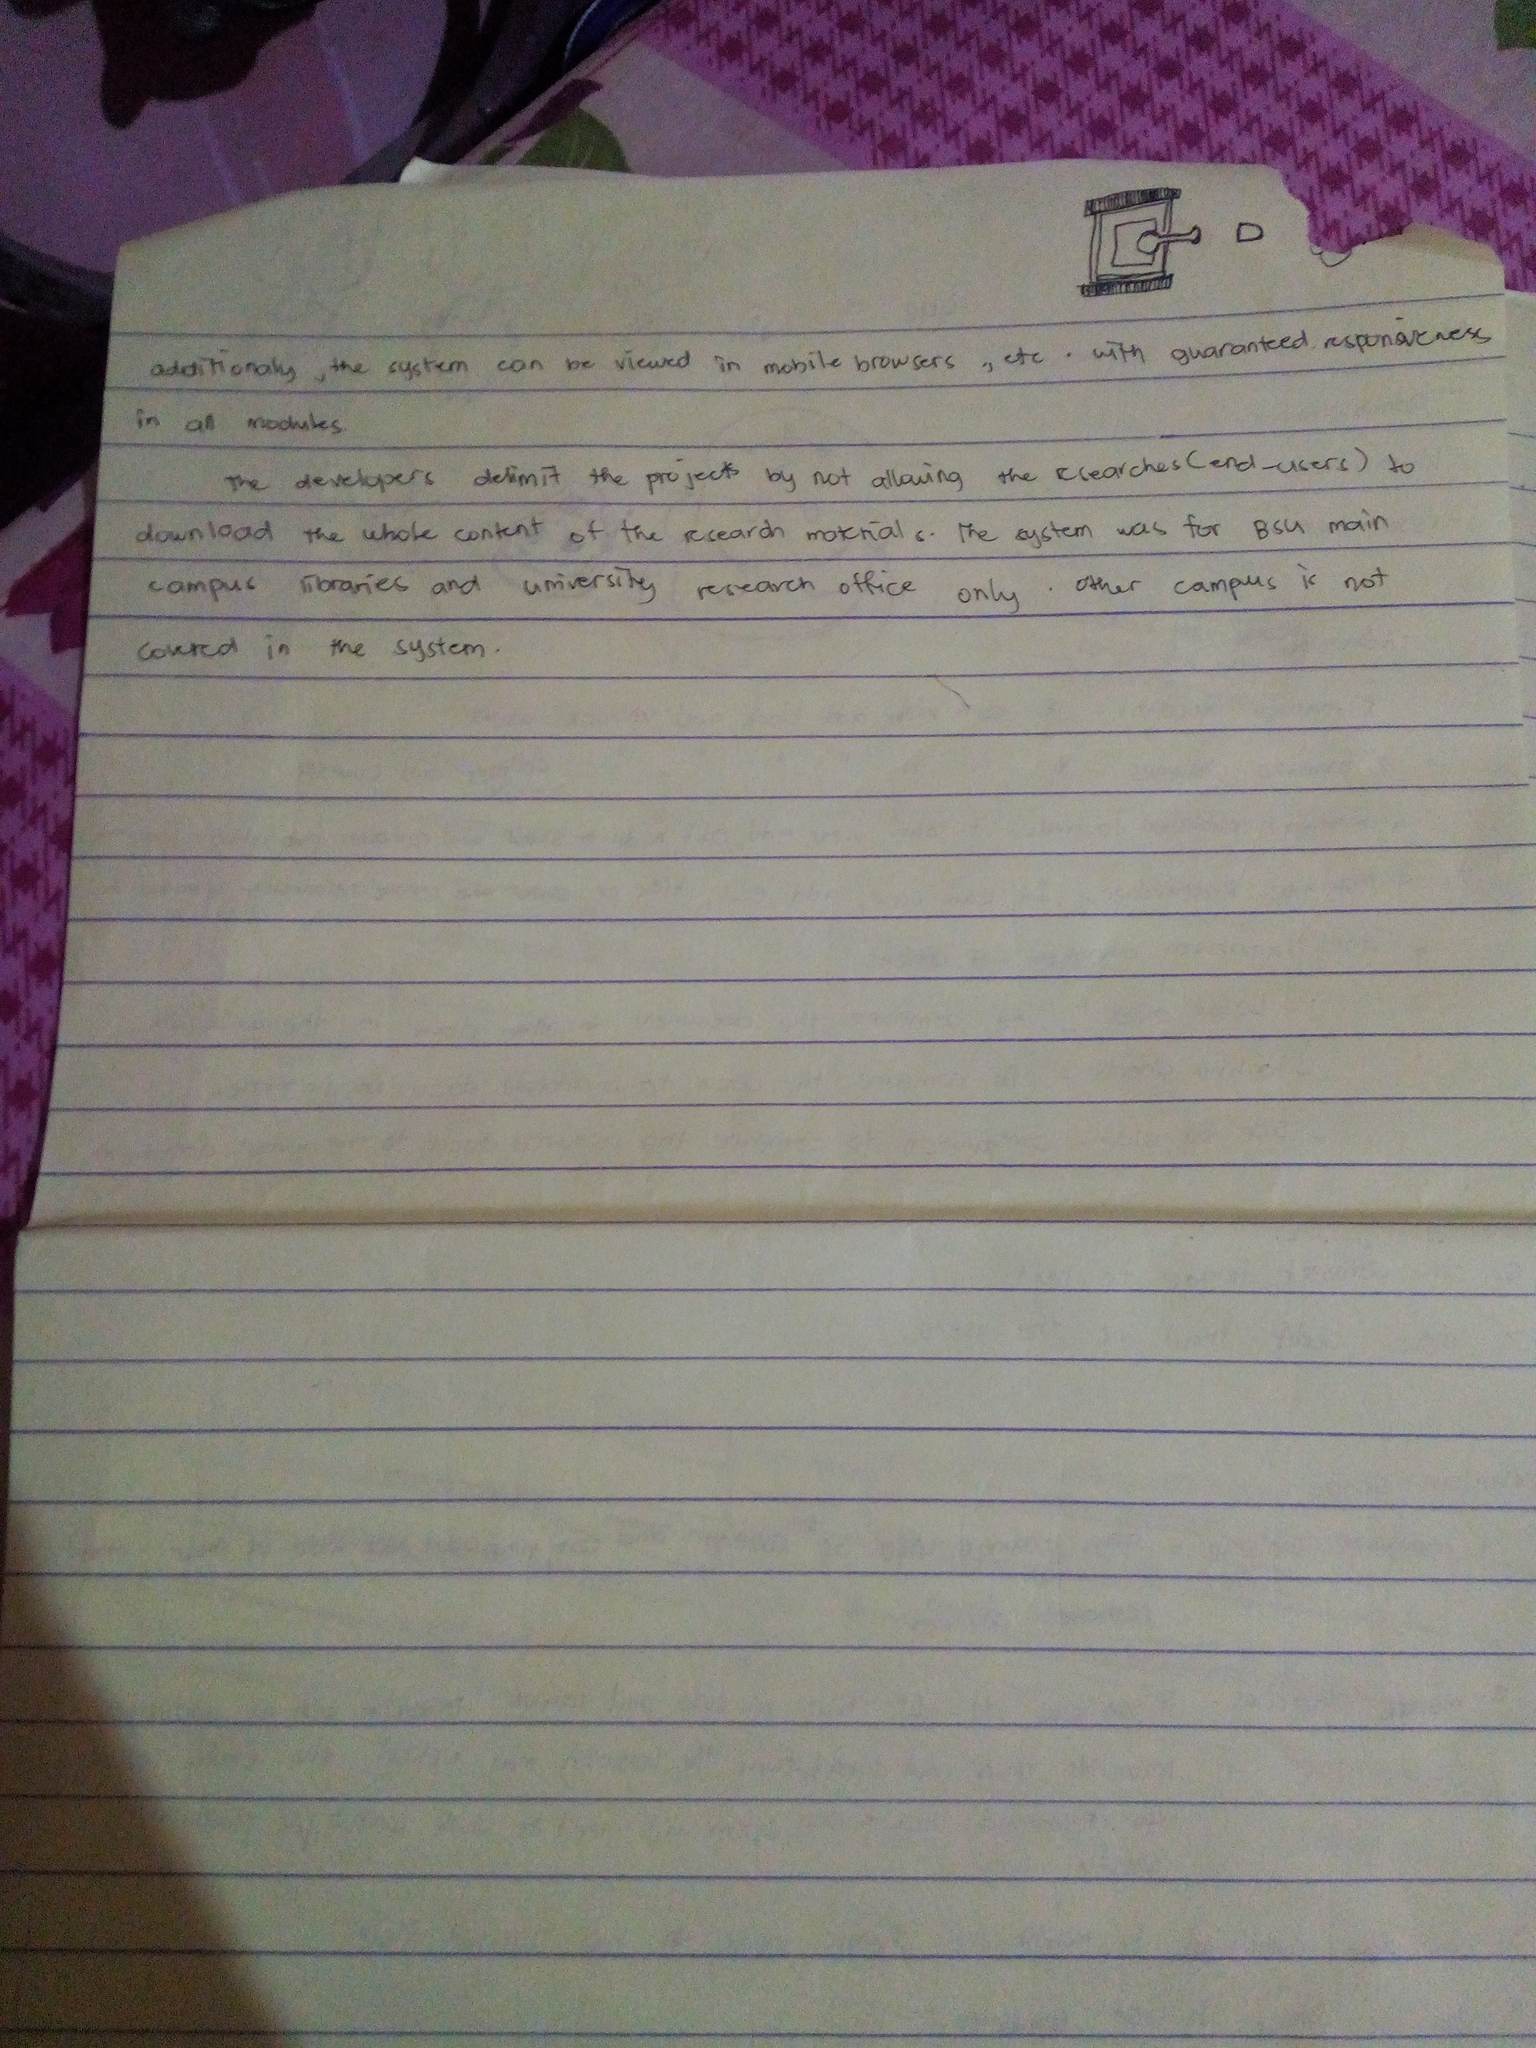 additionaly, the system can be viewed in mobile browsers, etc. with guaranteed responsiveness
in all modules.
The developers delimit the projects by not allowing the researches (end-users) to
download the whole content of the research materials. The system was for BSU main
campus libraries and university research office only. Other campus is not
covered in the system.